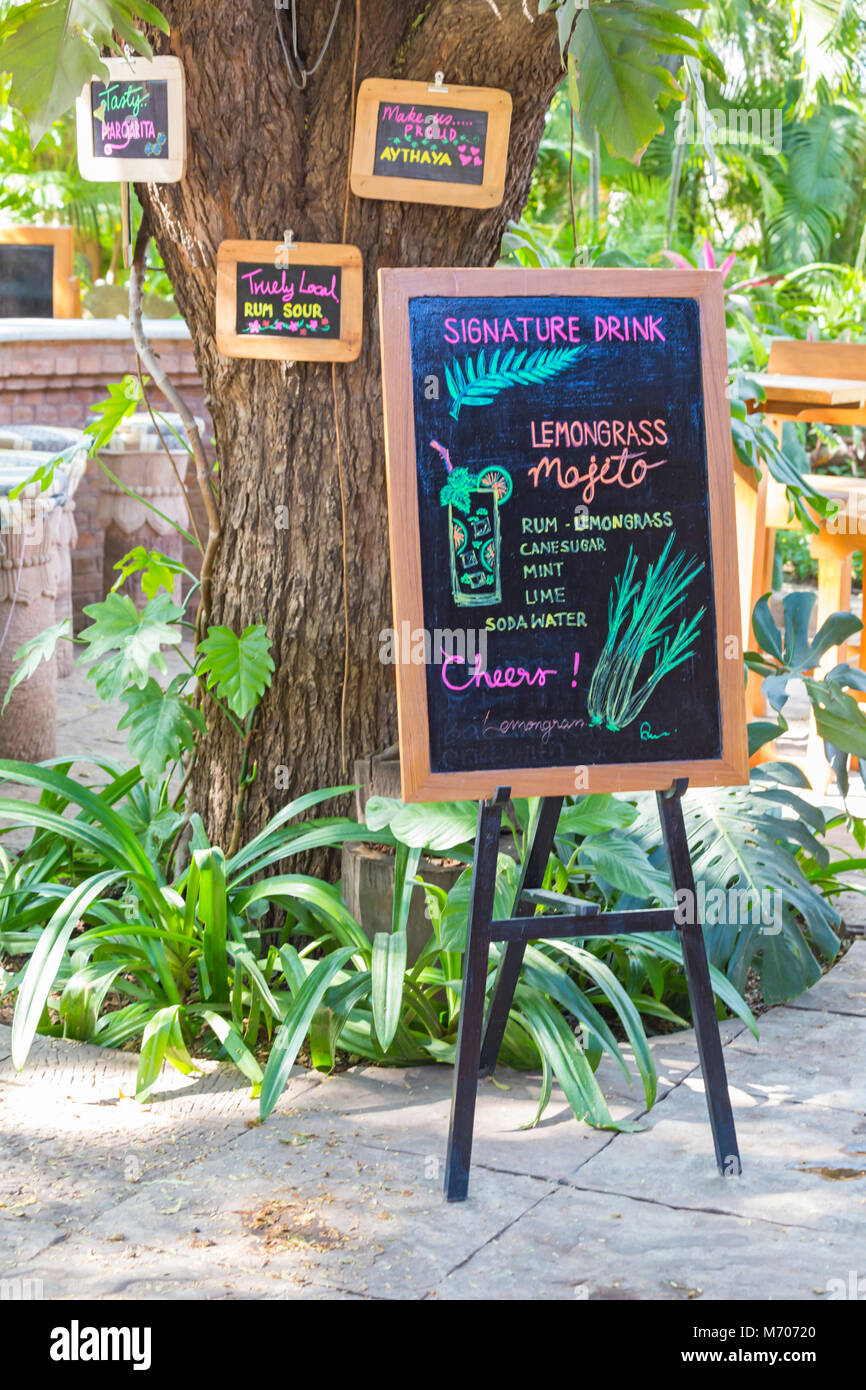 Tasty..
MARGARITA
Make us.....
PROUD
AYTHAYA
Truely Local
RUM SOUR
SIGNATURE DRINK
LEMONGRASS
Mojeto
RUM - LEMONGRASS
CANESUGAR
MINT
LIME
SODA WATER
Cheers !
Lemongrass
alamy
alamy
Image ID: M70720
www.alamy.com